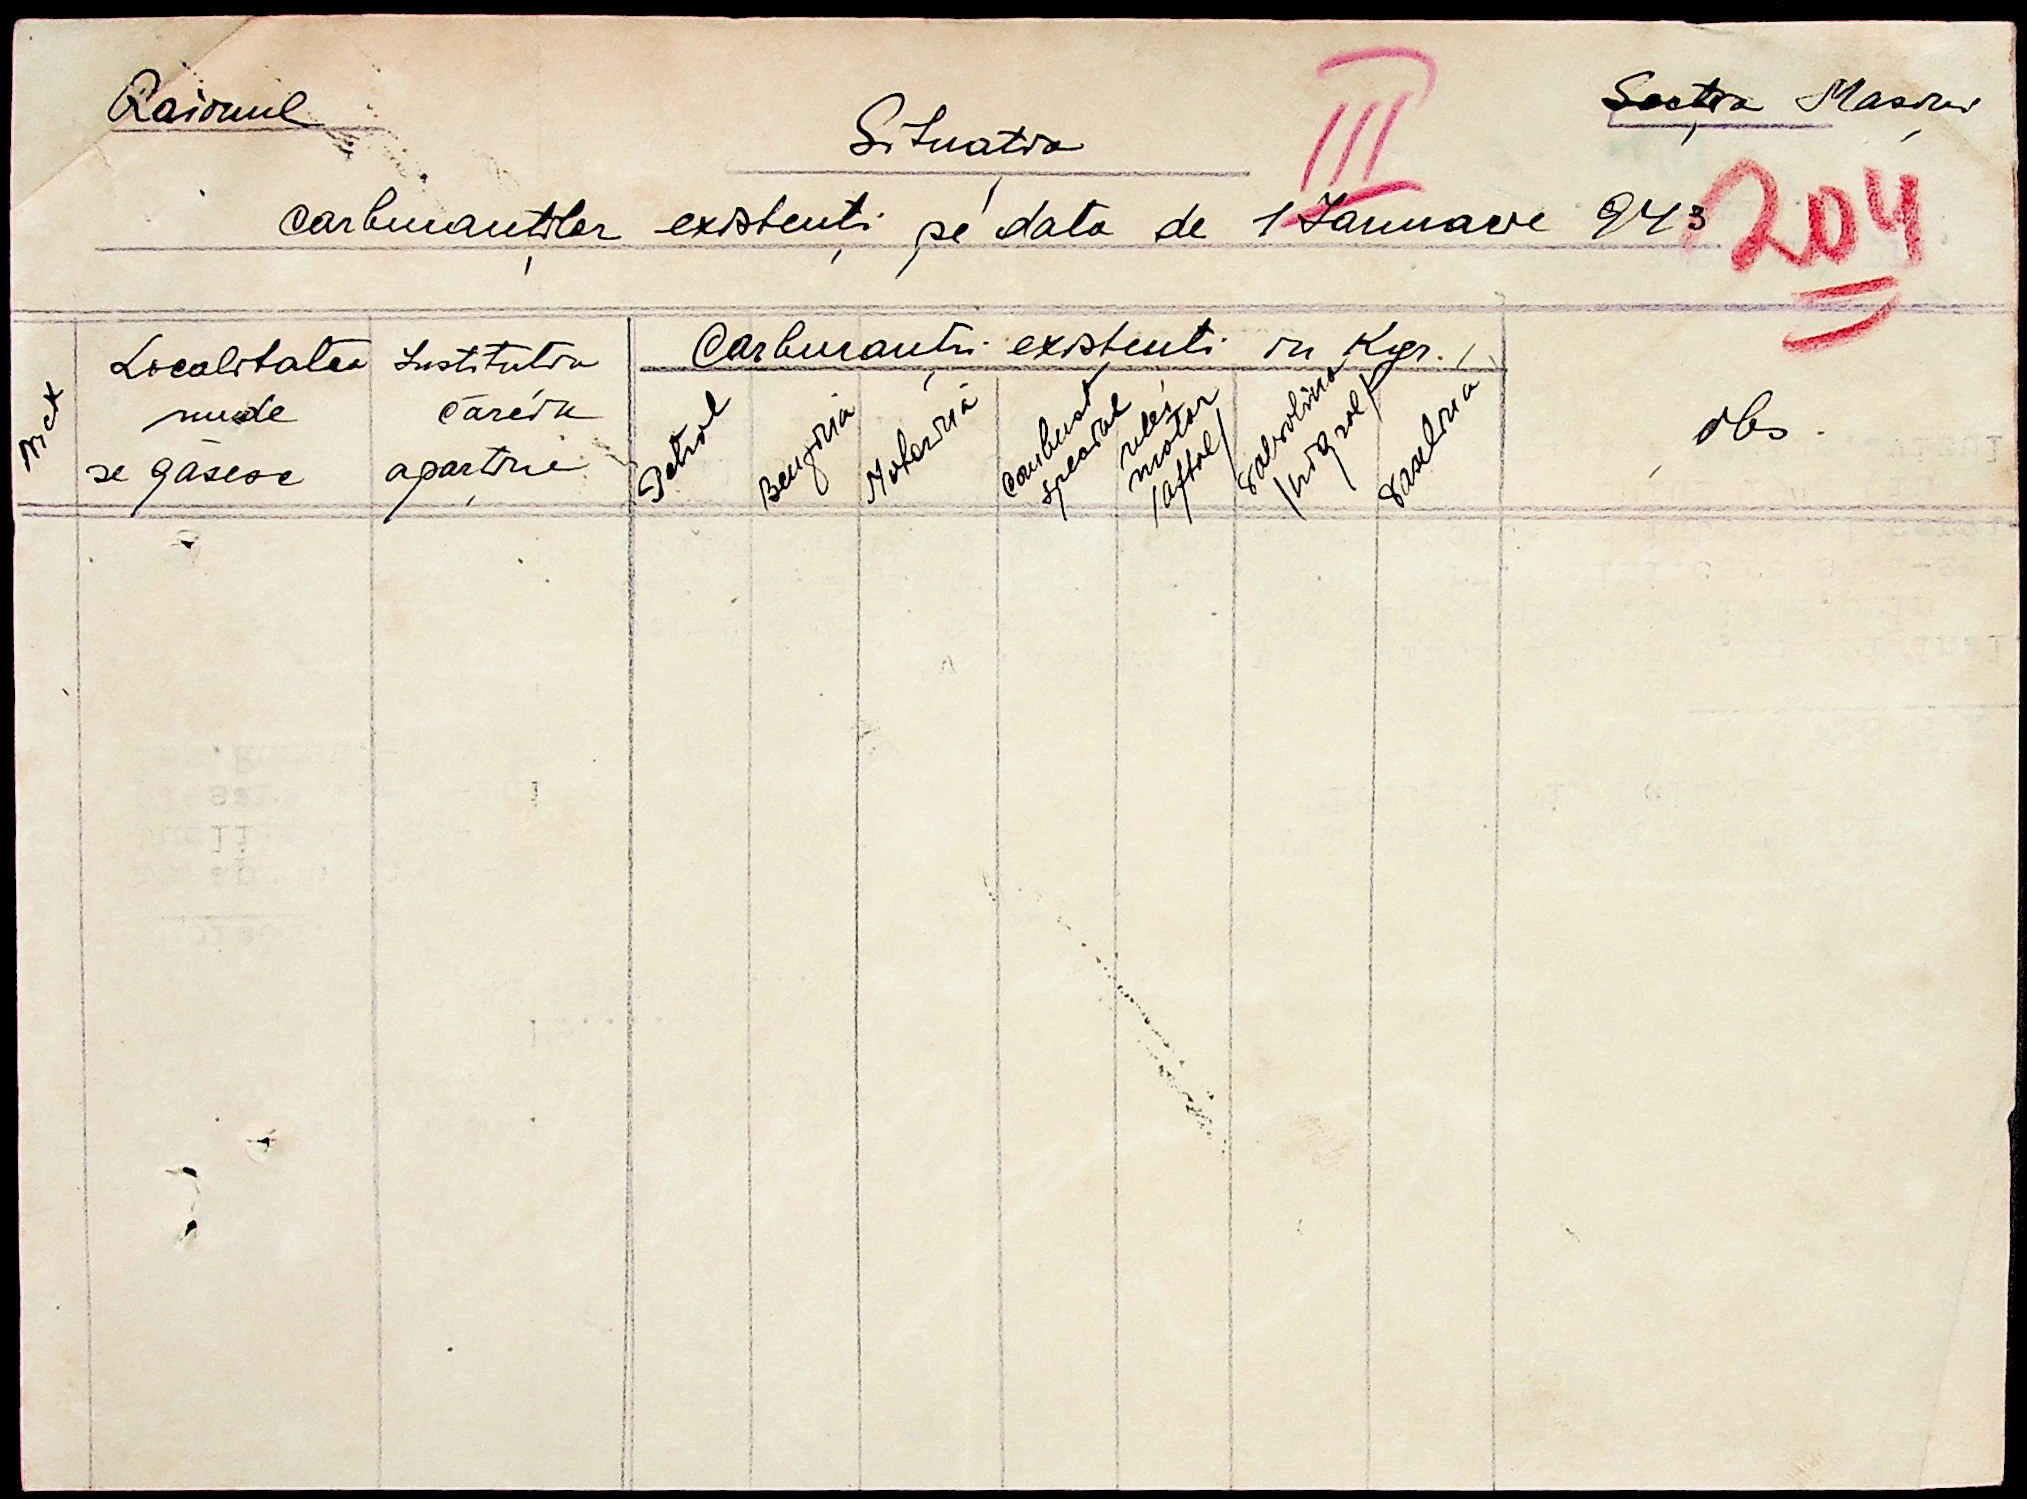 Raionul
Secția Mașini
III
Situația
carburanților existenți pe data de 1 Ianuarie 943
204
Nr ct
Localitatea
unde
se găsesc
Instituția
căreia
aparține
Carburanți existenți în Kgr.
Petrol
Benzină
Motorină
Combust
special
ulei
motor
/aftol/
Valvolină
/nigrol/
Vaselină
Obs.